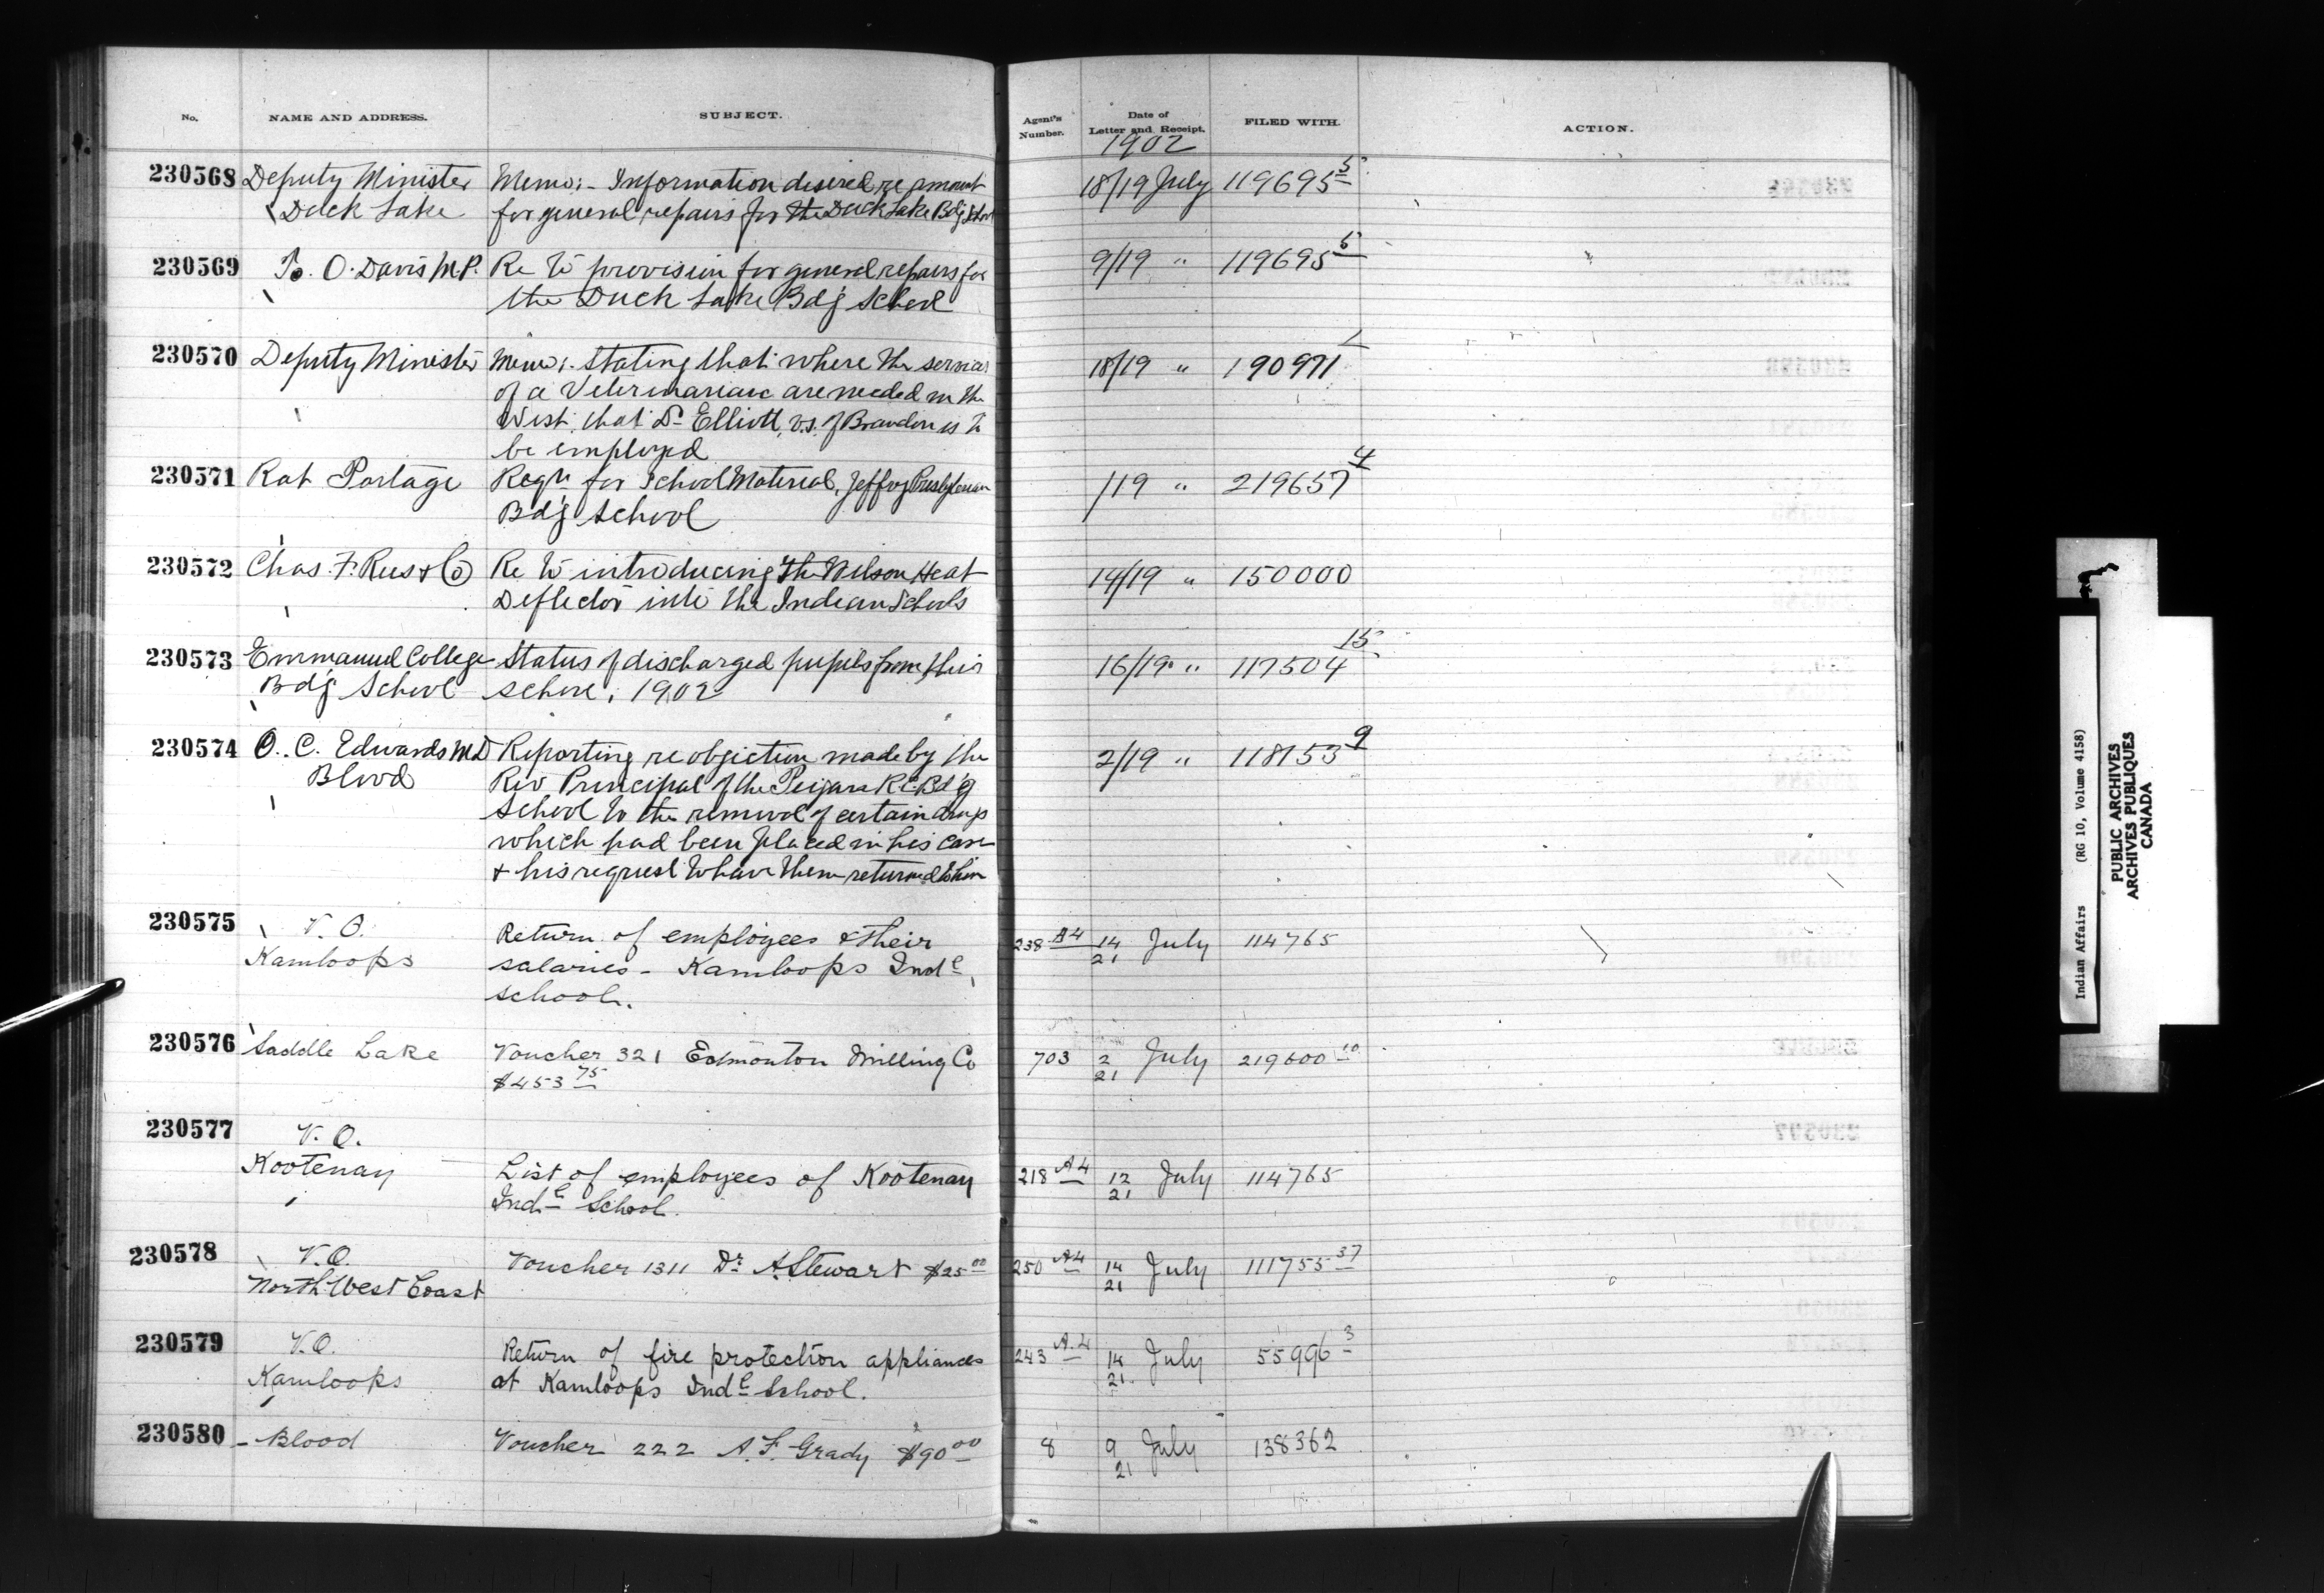 No. NAME AND ADDRESS. SUBJECT. Agent's Number. Date of Letter and Receipt. FILED WITH. ACTION.
1902
230568 Deputy Minister Memo:- Information desired re amount 18/19 July 119695 5
Duck Lake for general repairs for the Duck Lake Bdg School
230569 T. O. Davis M.P. Re to provision for general repairs for 9/19 " 119695 5
the Duck Lake Bdg School
230570 Deputy Minister Memo:- Stating that where the services 18/19 " 190971
of a Veterinarian are needed in the
West, that Dr Elliott, V.S. of Brandon is to
be employed
230571 Rat Portage Reqn for School Material, Presbyterian /19 " 219657 4
Bdg School
230572 Chas. F. Rees & Co Re to introducing the Wilson Heat 14/19 " 150000
Deflector into the Indian Schools
230573 Emmanuel College Status of discharged pupils from this 16/19 " 117504 15
Bdg School school, 1902
230574 O. C. Edwards M.D Reporting re objection made by the 2/19 " 118153 9
Blood Rev Principal of the Peigan R.C. Bdg
School to the removal of certain drugs
which had been placed in his care
& his request to have them returned to him
230575 V. O. Return of employees & their 238 A4 14 July 114765
Kamloops salaries - Kamloops Indl 21
school.
230576 Saddle Lake Voucher 321 Edmonton Milling Co 703 2 July 219600 10
$453 75 21
230577 V. O.
Kootenay List of employees of Kootenay 218 A4 12 July 114765
Indl School. 21
230578 V.O. Voucher 1311 Dr A. Stewart $25 00 250 A4 14 July 111755 37
North West Coast 21
230579 V.O. Return of fire protection appliances 243 A.4 14 July 55996 3
Kamloops at Kamloops Indl School. 21
230580 - Blood Voucher 222 A. F. Grady $90 00 8 9 July 138362
21
Indian Affairs (RG 10, Volume 4158)
PUBLIC ARCHIVES
ARCHIVES PUBLIQUES
CANADA